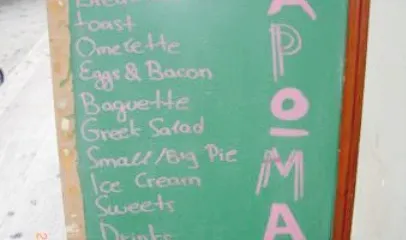 toast
Omelette
Eggs & Bacon
Baguette
Greek Salad
Small/Big Pie
Ice Cream
Sweets
Drinks
A
P
O
M
A